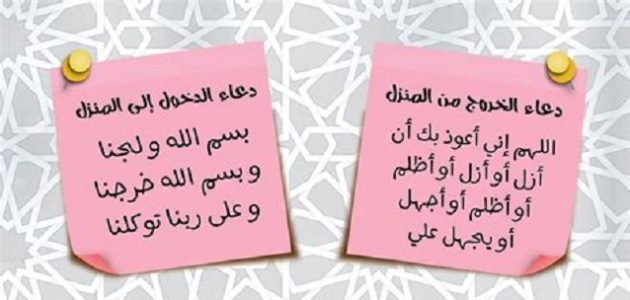 دعاء الخروج من المنزل
اللهم إني أعوذ بك أن
أزل أو أزل أو أظلم
أو أظلم أو أجهل
أو يجهل علي
دعاء الدخول إلى المنزل
بسم الله ولجنا
وبسم الله خرجنا
وعلى ربنا توكلنا